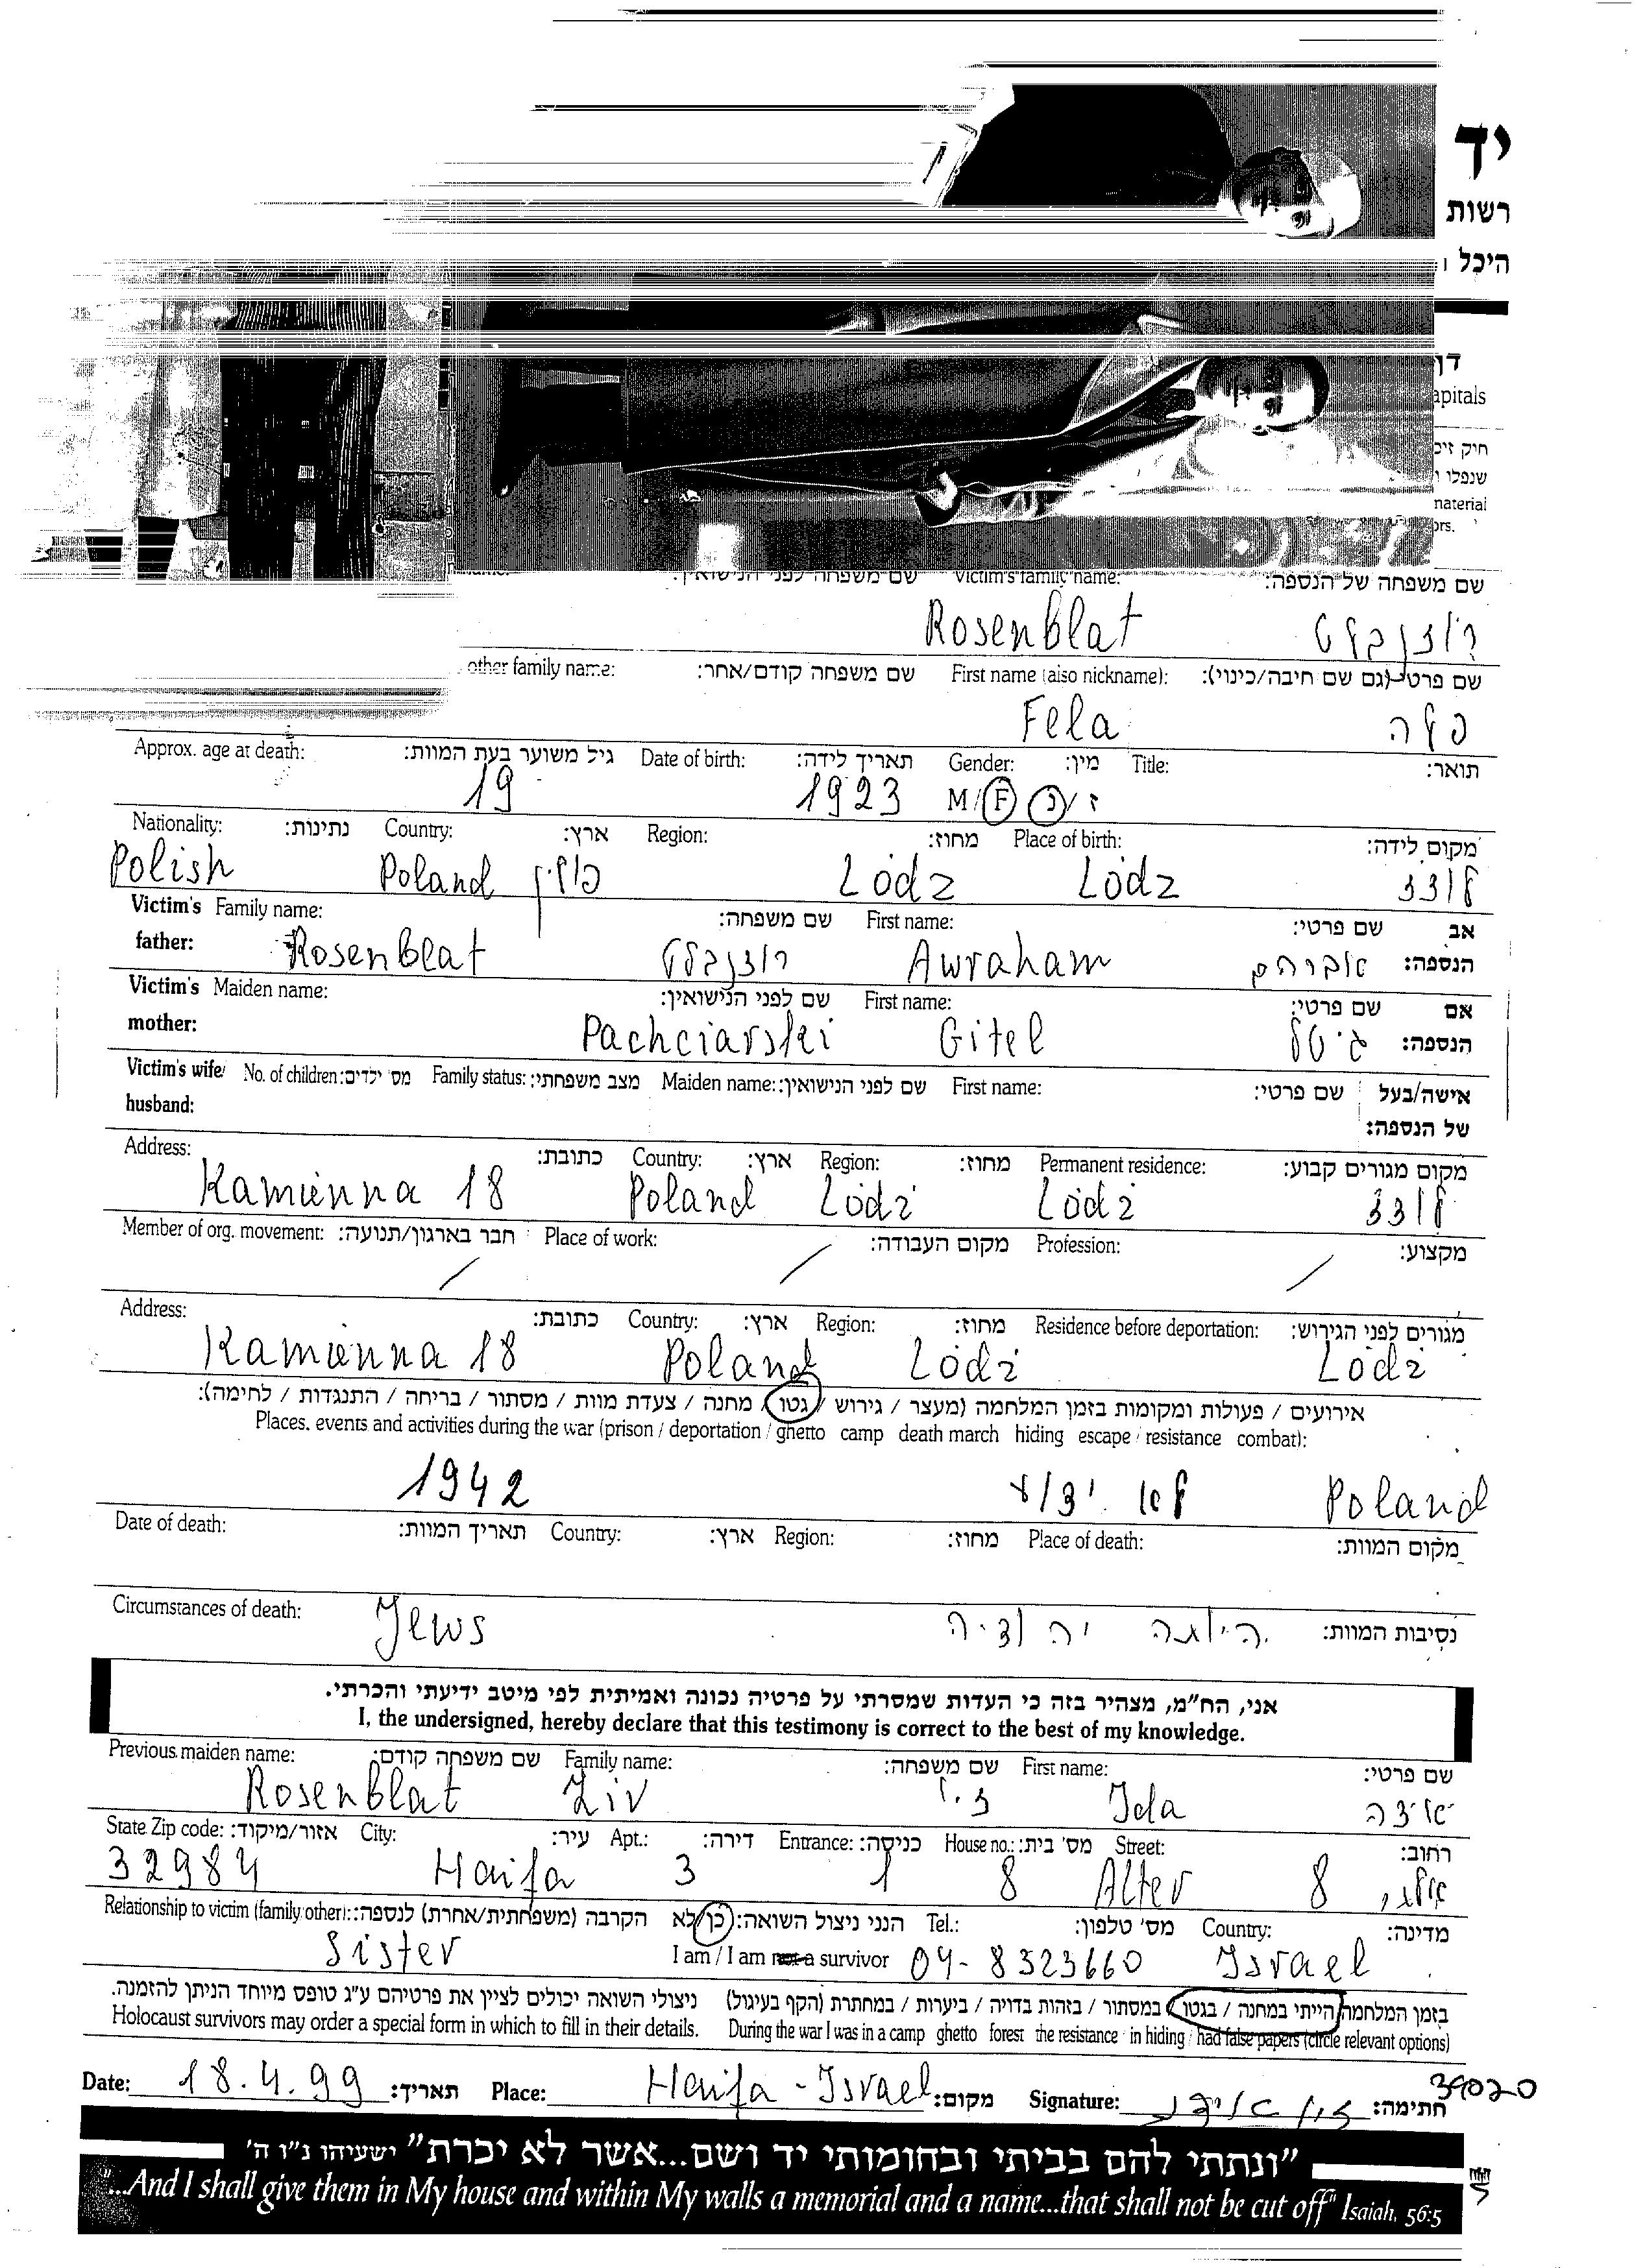 יד
רשות
היכל
דף
apitals
חיק זיכ
שנפלו
material
ors.
שם משפחה של הנספה: Victim's family name: שם משפחה לפני הנישואין:
רוזנבלט Rosenblat
שם פרטי (גם שם חיבה/כינוי): First name (also nickname): שם משפחה קודם/אחר: other family name:
פלה Fela
תואר: Title: מין: Gender: תאריך לידה: Date of birth: גיל משוער בעת המוות: Approx. age at death:
ז / נ M / F 1923 19
מקום לידה: Place of birth: מחוז: Region: ארץ: Country: נתינות: Nationality:
לודז Lódz Lódz פולין Poland Polish
אב הנספה: שם פרטי: First name: שם משפחה: Family name: Victim's father:
אברהם Awraham רוזנבלט Rosenblat
אם הנספה: שם פרטי: First name: שם לפני הנישואין: Maiden name: Victim's mother:
גיטל Gitel Pachciarski
אישה/בעל של הנספה: שם פרטי: First name: שם לפני הנישואין: Maiden name: מצב משפחתי: Family status: מס' ילדים: No. of children: Victim's wife/ husband:
מקום מגורים קבוע: Permanent residence: מחוז: Region: ארץ: Country: כתובת: Address:
לודז Lódź Lódź Poland Kamienna 18
מקצוע: Profession: מקום העבודה: Place of work: חבר בארגון/תנועה: Member of org. movement:
מגורים לפני הגירוש: Residence before deportation: מחוז: Region: ארץ: Country: כתובת: Address:
Lódź Lódź Poland Kamienna 18
אירועים / פעולות ומקומות בזמן המלחמה (מעצר / גירוש / גטו / מחנה / צעדת מוות / מסתור / בריחה / התנגדות / לחימה):
Places, events and activities during the war (prison / deportation / ghetto camp death march hiding escape / resistance combat):
Poland 1942
מקום המוות: Place of death: מחוז: Region: ארץ: Country: תאריך המוות: Date of death:
נסיבות המוות: היותה יהודיה Jews Circumstances of death:
אני, הח"מ, מצהיר בזה כי העדות שמסרתי על פרטיה נכונה ואמיתית לפי מיטב ידיעתי והכרתי.
I, the undersigned, hereby declare that this testimony is correct to the best of my knowledge.
שם פרטי: First name: שם משפחה: Family name: שם משפחה קודם: Previous maiden name:
אידה Ida זיו Ziv Rosenblat
רחוב: Street: מס' בית: House no.: כניסה: Entrance: דירה: Apt.: עיר: City: אזור/מיקוד: State Zip code:
8 Alter 8 1 3 Haifa 32984
מדינה: Country: מס' טלפון: Tel.: הנני ניצול השואה: כן/לא הקרבה (משפחתית/אחרת) לנספה: Relationship to victim (family other):
Israel 04-8323660 I am / I am not a survivor Sister
בזמן המלחמה הייתי במחנה / בגטו / במסתור / בזהות בדויה / ביערות / במחתרת (הקף בעיגול) ניצולי השואה יכולים לציין את פרטיהם ע"ג טופס מיוחד הניתן להזמנה.
Holocaust survivors may order a special form in which to fill in their details. During the war I was in a camp ghetto forest the resistance in hiding / had false papers (circle relevant options)
34020
Date: 18.4.99 תאריך: Place: Haifa - Israel מקום: Signature: זיו אידה חתימה:
"ונתתי להם בביתי ובחומותי יד ושם...אשר לא יכרת" ישעיהו נ"ו ה'
"...And I shall give them in My house and within My walls a memorial and a name...that shall not be cut off" Isaiah, 56:5